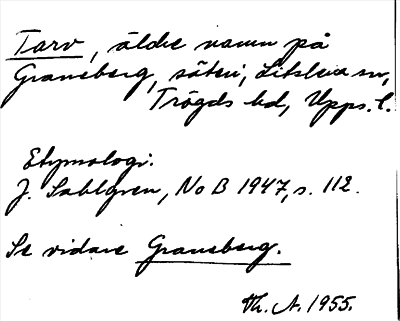 Tarv, äldre namn på
Graneberg, säteri, Litslena sn,
Trögds hd, Upps. l.
Etymologi:
J. Sahlgren, NoB 1947, s. 112.
Se vidare Graneberg.
Th. A. 1955.